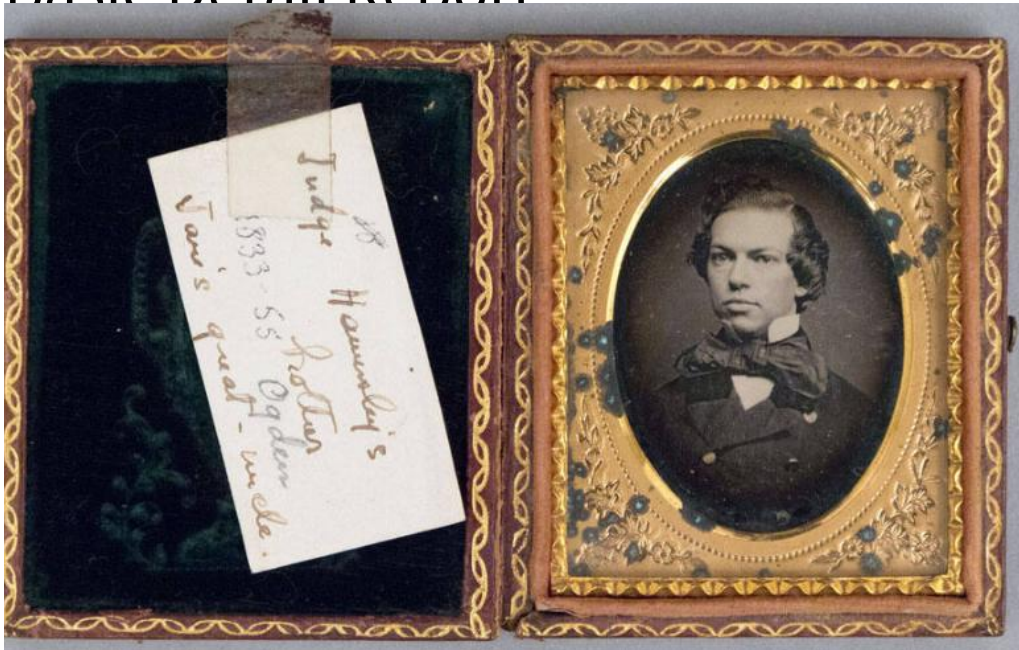 Judge Hamersley's
brother
1833-55 Ogden
Jane's great-uncle.